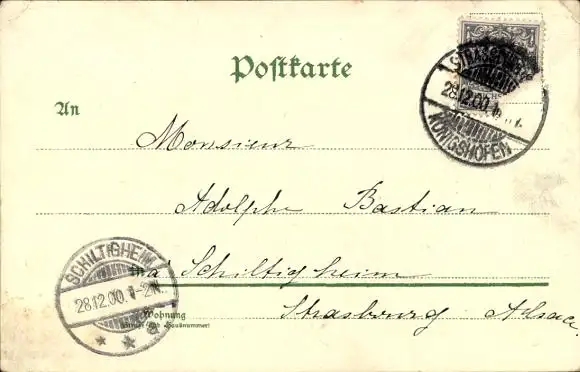 Postkarte
An
Monsieur
Adolphe Bastian
à Schiltigheim
Strasbourg Alsace
Wohnung
STRASSBURG
28.12.00.
KÖNIGSHOFEN
SCHILTIGHEIM
28.12.00. 1-2N.
* * *